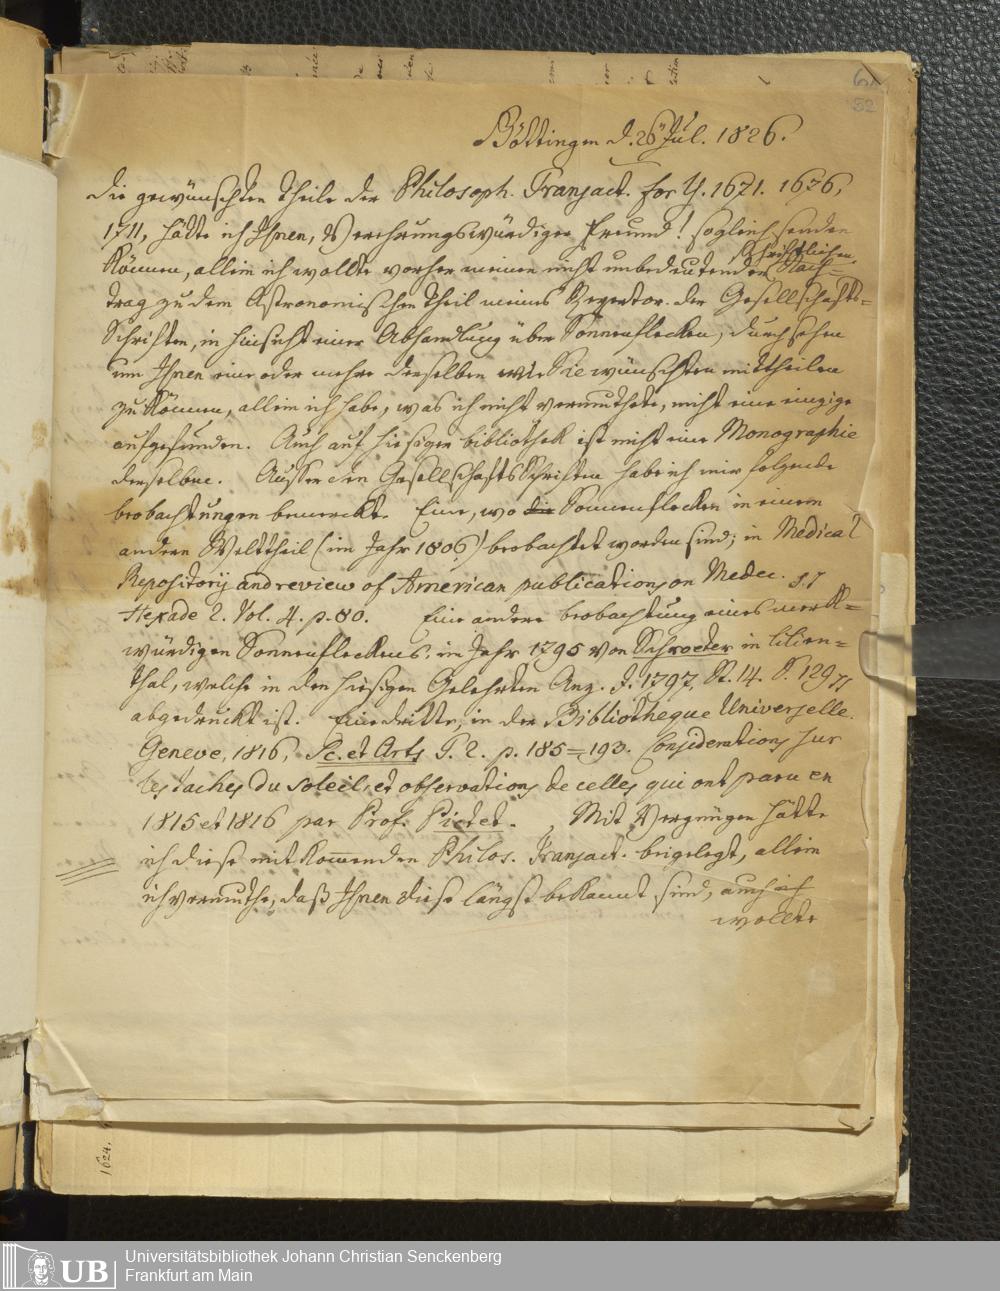 Göttingen d. 26 Jul. 1826.
die gewünschten Theile der Philosoph. Transact. for Y. 1671. 1676,
1711, hätte ich Ihnen, Verehrungswürdiger Freund! sogleich senden
können, allein ich wollte vorher meinen nicht unbedeutenden schriftlichen Nach=
trag zu dem Astronomischen Theil meines Repertor. der Gesellschafts=
Schriften, in Hinsicht einer Abhandlung über Sonnenflecken, durchsehen
um Ihnen eine oder mehre derselben wie Sie wünschten mittheilen
zu können, allein ich habe, was ich nicht vermuthete, nicht eine einzige
aufgefunden. Auch auf hiesiger bibliothek ist nicht eine Monographie
derselben. Ausser den Gesellschafts Schriften habe ich mir folgende
beobachtungen bemerckt. Eine, wo die Sonnenflecken in einem
andern Welttheil (im Jahr 1806) beobachtet worden sind; in Medical
Repository and review of American publications on Medec.
Hexade 2. Vol. 4. p. 80. Eine andere beobachtung eines merk=
würdigen Sonnenfleckens, im Jahr 1795 von Schroeter in Lilien=
thal, welche in den hiesigen Gelehrten Anz. J. 1797, St. 14. S. 129
abgedruckt ist. Eine dritte, in der Bibliotheque Universelle.
Geneve, 1816, Sc. et Arts T. 2. p. 185=193. Considerations sur
les taches du Soleil, et observations de celles qui ont paru en
1815 et 1816 par Prof. Pictet. Mit Vergnügen hätte
ich diese mit kommenden Philos. Transact. beigelegt, allein
ich vermuthe, daß Ihnen diese längst bekannt sind, auch ich
wollte
1624.
UB
Universitätsbibliothek Johann Christian Senckenberg
Frankfurt am Main